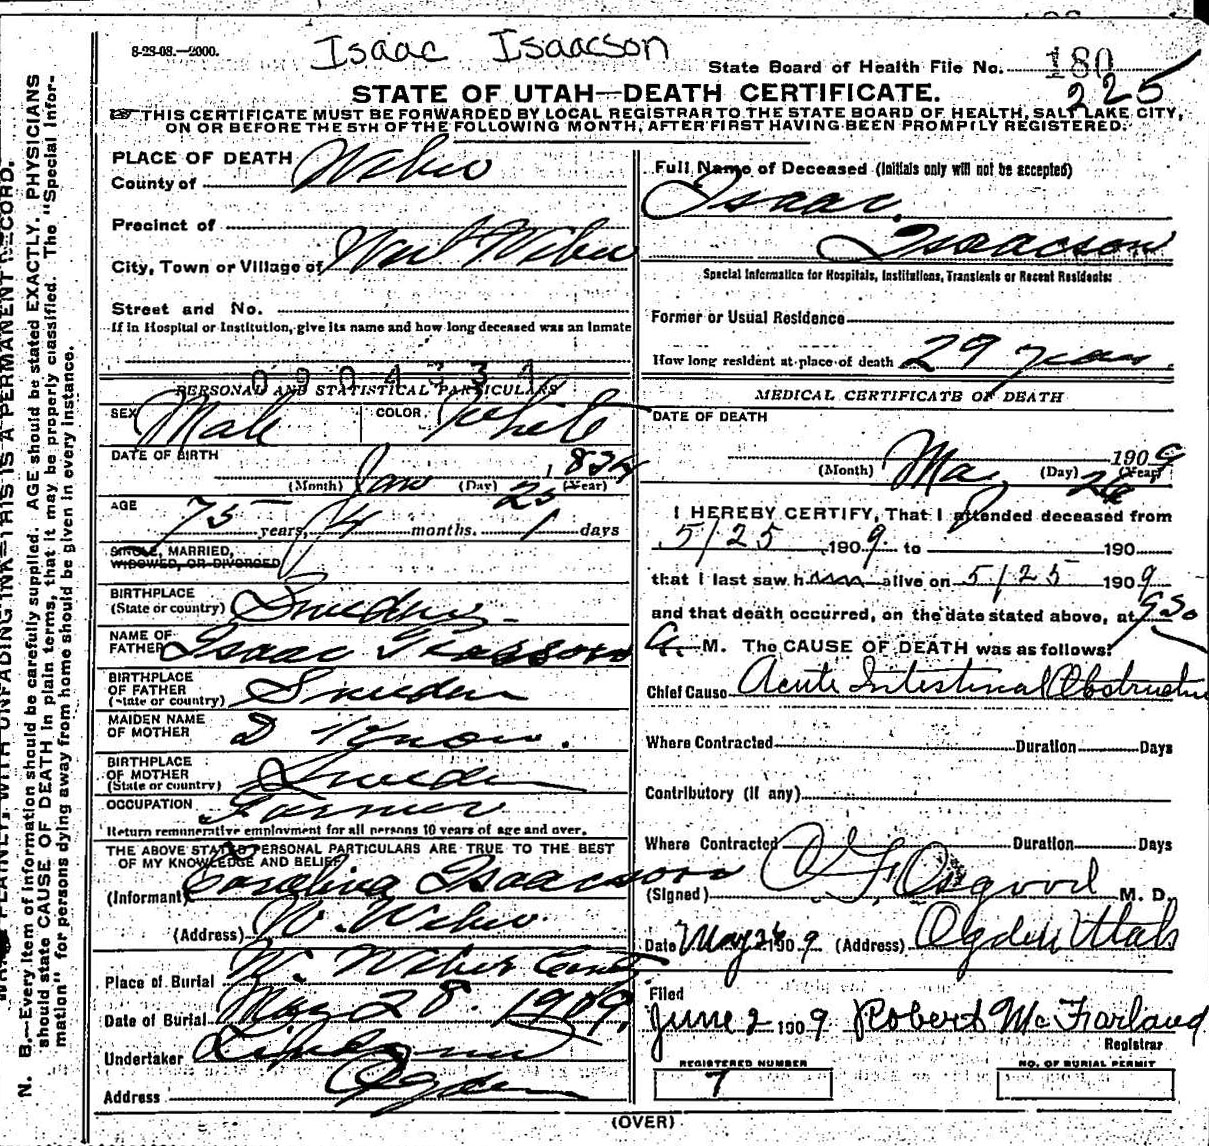 8-28-08.—2000.
Isaac Isaacson
State Board of Health File No. 180
225
STATE OF UTAH—DEATH CERTIFICATE.
THIS CERTIFICATE MUST BE FORWARDED BY LOCAL REGISTRAR TO THE STATE BOARD OF HEALTH, SALT LAKE CITY,
ON OR BEFORE THE 5TH OF THE FOLLOWING MONTH, AFTER FIRST HAVING BEEN PROMPTLY REGISTERED.
PLACE OF DEATH
County of Weber
Precinct of
City, Town or Village of West Weber
Street and No.
If in Hospital or Institution, give its name and how long deceased was an inmate
0904731
PERSONAL AND STATISTICAL PARTICULARS
SEX Male COLOR White
DATE OF BIRTH
(Month) Jan (Day) 25 (Year) 1834
AGE
75 years, 4 months. 1 days
SINGLE, MARRIED,
WIDOWED, OR DIVORCED
BIRTHPLACE
(State or country) Sweden
NAME OF
FATHER Isaac
BIRTHPLACE
OF FATHER
(State or country) Sweden
MAIDEN NAME
OF MOTHER D Know.
BIRTHPLACE
OF MOTHER
(State or country) Sweden
OCCUPATION Farmer
Return remunerative employment for all persons 10 years of age and over.
THE ABOVE STATED PERSONAL PARTICULARS ARE TRUE TO THE BEST
OF MY KNOWLEDGE AND BELIEF
(Informant) Carolina Isaacson
(Address) W. Weber
Place of Burial W. Weber Cemty
Date of Burial May 28. 1909.
Undertaker
Address Ogden
Full Name of Deceased (Initials only will not be accepted)
Isaac
Isaacson
Special Information for Hospitals, Institutions, Transients or Recent Residents:
Former or Usual Residence
How long resident at place of death 29 years.
MEDICAL CERTIFICATE OF DEATH
DATE OF DEATH
(Month) May (Day) 26 1909 (Year)
I HEREBY CERTIFY, That I attended deceased from
5/25 1909 to 190
that I last saw him alive on 5/25 1909
and that death occurred, on the date stated above, at 930
A. M. The CAUSE OF DEATH was as follows:
Chief Cause Acute Intestinal Obstructio
Where Contracted Duration Days
Contributory (if any)
Where Contracted Duration Days
(Signed) O. F. Osgood M. D.
Date May 26 1909 (Address) Ogden Utah
Filed
June 2 1909 Robert McFarland
Registrar
REGISTERED NUMBER
7
NO. OF BURIAL PERMIT
(OVER)
PLAINLY, WITH UNFADING INK—THIS IS A PERMANENT RECORD.
N. B.—Every item of information should be carefully supplied. AGE should be stated EXACTLY. PHYSICIANS
should state CAUSE OF DEATH in plain terms, that it may be properly classified. The "Special Infor-
mation" for persons dying away from home should be given in every instance.